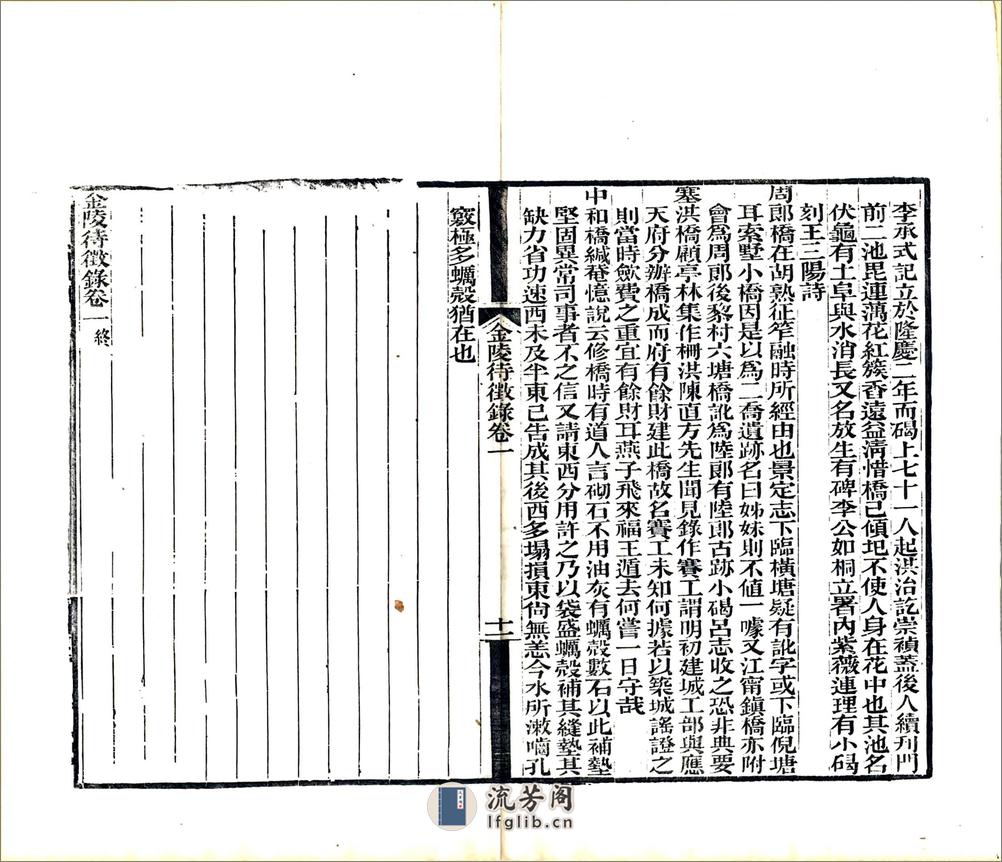 李承式記立於隆慶二年而碣上七十一人起洪治訖崇禎蓋後人續刋門
前二池毘連藕花紅簇香遠益淸惜橋已傾圯不使人身在花中也其池名
伏龜有土阜與水消長又名放生有碑李公如桐立署內紫薇連理有小碣
刻王三陽詩
周郎橋在胡熟征笮融時所經由也景定志下臨橫塘疑有訛字或下臨倪塘
耳索墅小橋因是以爲二喬遺跡名曰姊妹則不値一噱又江甯鎭橋亦附
會爲周郎後黎村六塘橋訛爲陸郎有陸郎古跡小碣呂志收之恐非典要
塞洪橋顧亭林集作柵洪陳直方先生聞見錄作賽工謂明初建城工部與應
天府分辦橋成而府有餘財建此橋故名賽工未知何據若以築城謠證之
則當時斂費之重宜有餘財耳燕子飛來福王遁去何嘗一日守哉
中和橋緘菴憶說云修橋時有道人言砌石不用油灰有蠣殼數石以此補墊
堅固異常司事者不之信又請東西分用許之乃以袋盛蠣殼補其縫墊其
缺力省功速西未及半東已告成其後西多塌損東尙無恙今水所漱嚙孔
金陵待徵錄卷一
十二
竅極多蠣殼猶在也
金陵待徵錄卷一 終
流芳阁
lfglib.cn